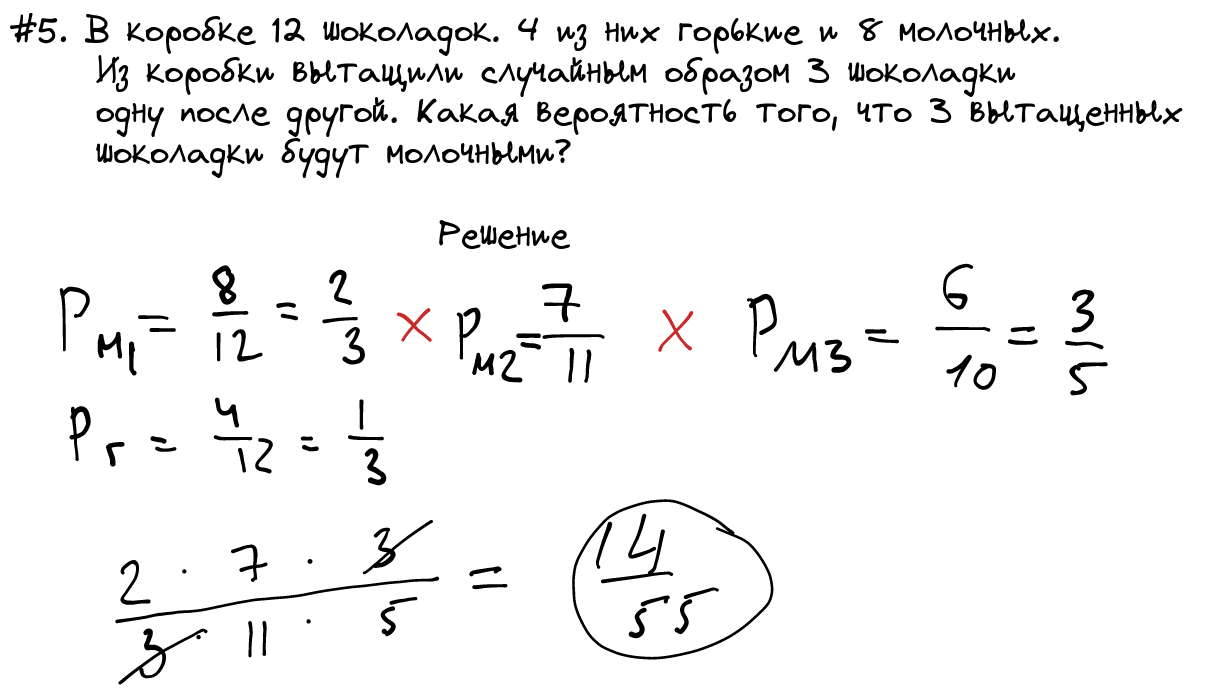 #5. В коробке 12 шоколадок. 4 из них горькие и 8 молочных.
Из коробки вытащили случайным образом 3 шоколадки
одну после другой. Какая вероятность того, что 3 вытащенных
шоколадки будут молочными?
Решение
Pм1 = 8/12 = 2/3 × Pм2 = 7/11 × Pм3 = 6/10 = 3/5
Pг = 4/12 = 1/3
2 · 7 · 3 / 3 · 11 · 5 = 14/55